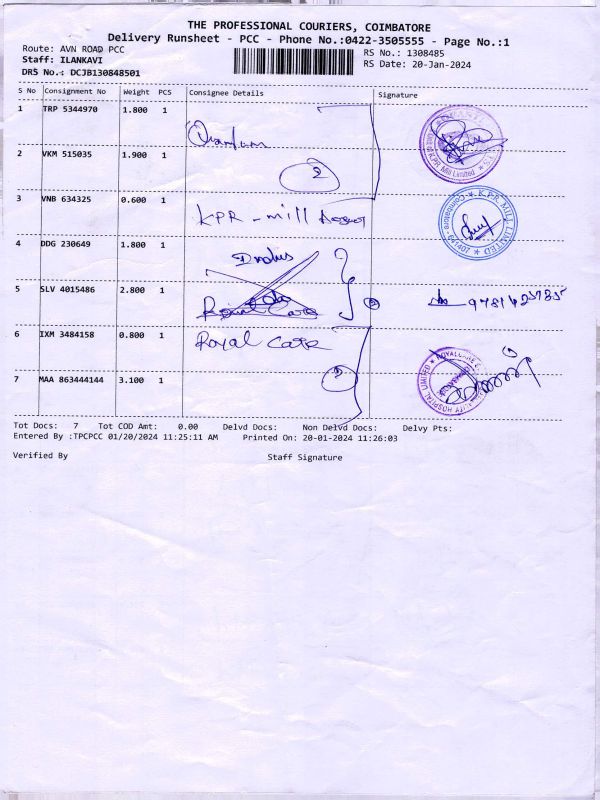 THE PROFESSIONAL COURIERS, COIMBATORE
Delivery Runsheet - PCC - Phone No.:0422-3505555 - Page No.:1
Route: AVN ROAD PCC
RS No.: 1308485
Staff: ILANKAVI
RS Date: 20-Jan-2024
DRS No.: DCJB130848501
S No Consignment No Weight PCS Consignee Details Signature
1 TRP 5344970 1.800 1
Quantum
2 VKM 515035 1.900 1
2
3 VNB 634325 0.600 1
KPR - mill
KPR MILL LIMITED
Coimbatore - 641407
4 DDG 230649 1.800 1
5 SLV 4015486 2.800 1
Royal Care
6 IXM 3484158 0.800 1
Royal Care
7 MAA 863444144 3.100 1
Tot Docs: 7 Tot COD Amt: 0.00 Delvd Docs: Non Delvd Docs: Delvy Pts:
Entered By :TPCPCC 01/20/2024 11:25:11 AM Printed On: 20-01-2024 11:26:03
Verified By Staff Signature